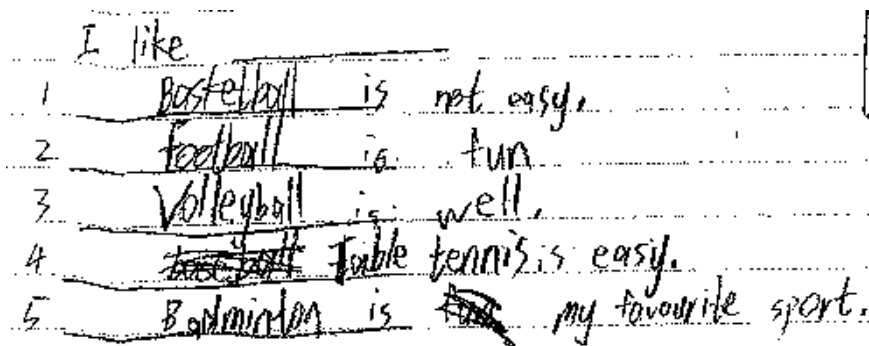 I like
1 Basketball is not easy.
2 Football is fun
3 Volleyball is well.
4 Table tennis is easy.
5 Badminton is my favourite sport.